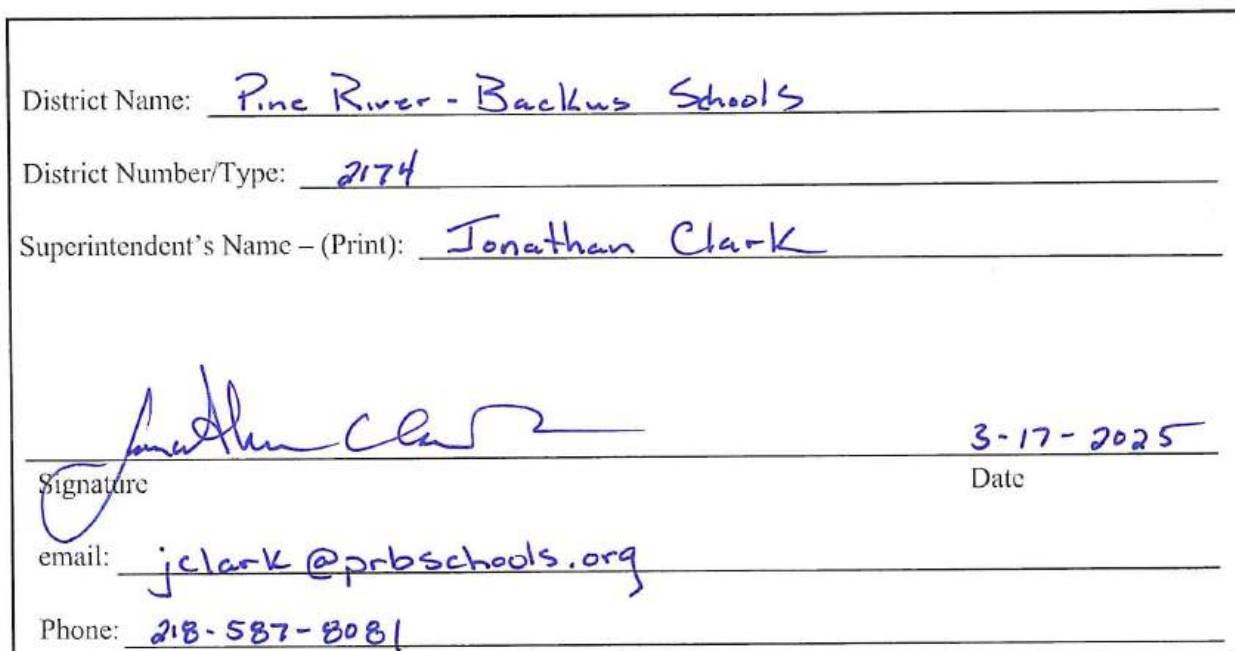 District Name: Pine River - Backus Schools
District Number/Type: 2174
Superintendent's Name – (Print): Jonathan Clark
Jonathan Clark 3-17-2025
Signature Date
email: jclark@prbschools.org
Phone: 218-587-8081